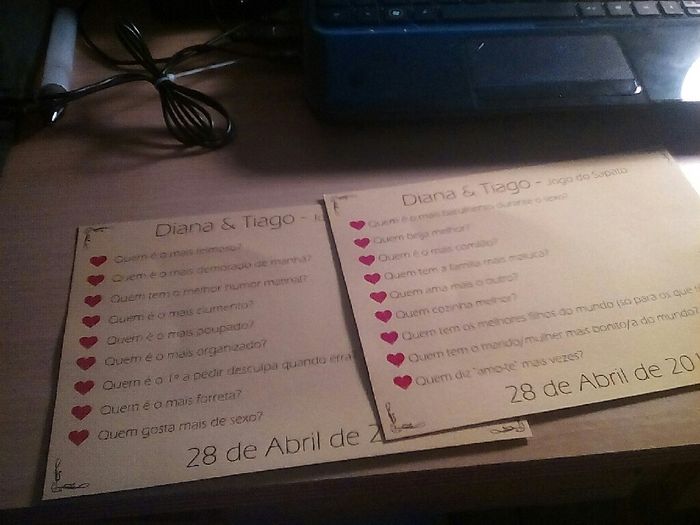 Diana & Tiago -
Quem é o mais teimoso?
Quem é o mais demorado de manhã?
Quem tem o melhor humor matinal?
Quem é o mais ciumento?
Quem é o mais poupado?
Quem é o mais organizado?
Quem é o 1º a pedir desculpa quando erra
Quem é o mais forreta?
Quem gosta mais de sexo?
28 de Abril de 2
Diana & Tiago - Jogo do Sapato
Quem é o mais barulhento durante o sexo?
Quem beija melhor?
Quem é o mais comilão?
Quem tem a família mais maluca?
Quem ama mais o outro?
Quem cozinha melhor?
Quem tem os melhores filhos do mundo (só para os que
Quem tem o marido/mulher mais bonito/a do mundo?
Quem diz "amo-te" mais vezes?
28 de Abril de 20